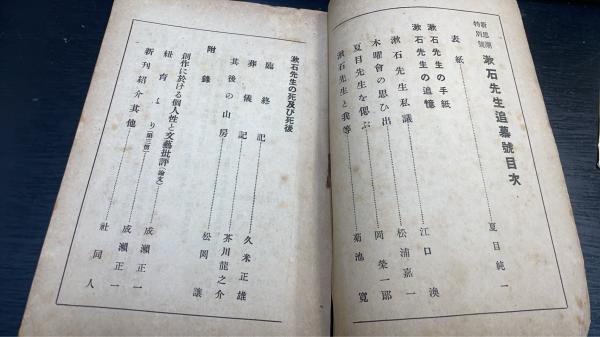 新思潮
特別號
漱石先生追慕號目次
表紙 夏目純一
漱石先生の手紙
漱石先生の追憶 江口渙
漱石先生私議 松浦嘉一
木曜會の思ひ出 岡榮一郎
夏目先生を偲ぶ
漱石先生と我等 菊池寛
漱石先生の死及び死後
臨終記 久米正雄
葬儀記 芥川龍之介
其後の山房 松岡讓
附錄
創作に於ける個人性と文藝批評(論文) 成瀬正一
紐育より(第三信) 成瀬正一
新刊紹介其他 社同人